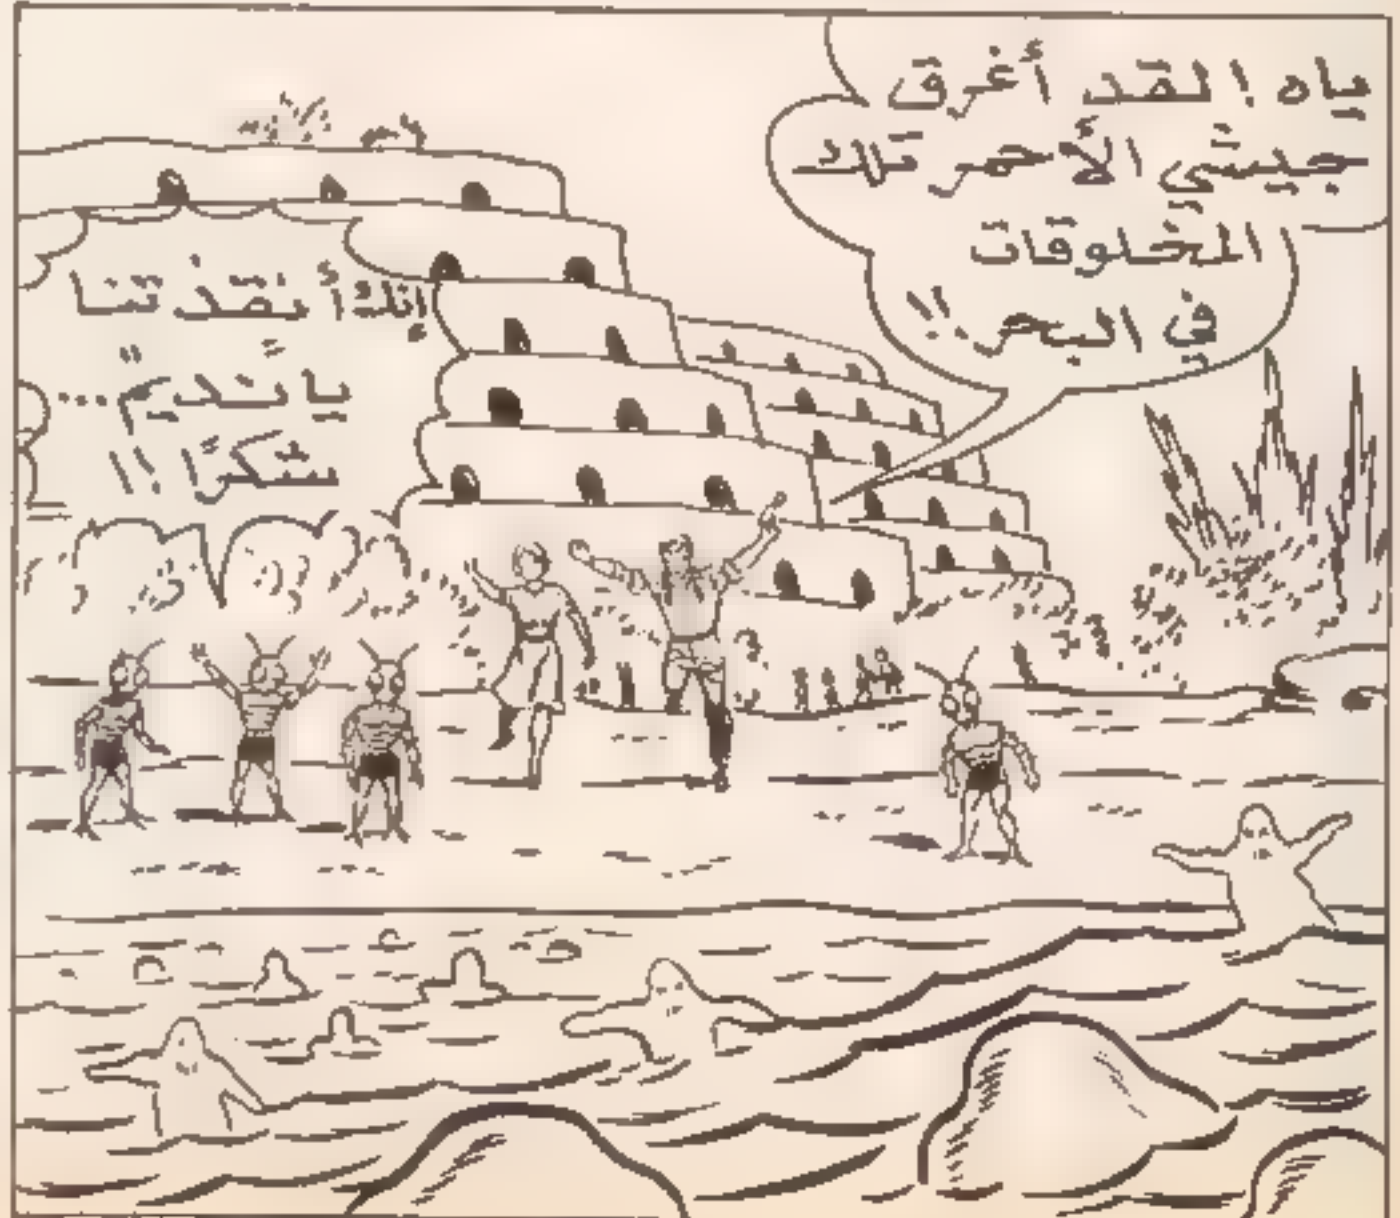 ياه ! لقد أغرق
جيشي الأحمر تلك
المخلوقات
في البحر..!!
إنك أنقذتنا
يا نديم ...
شكرًا !!